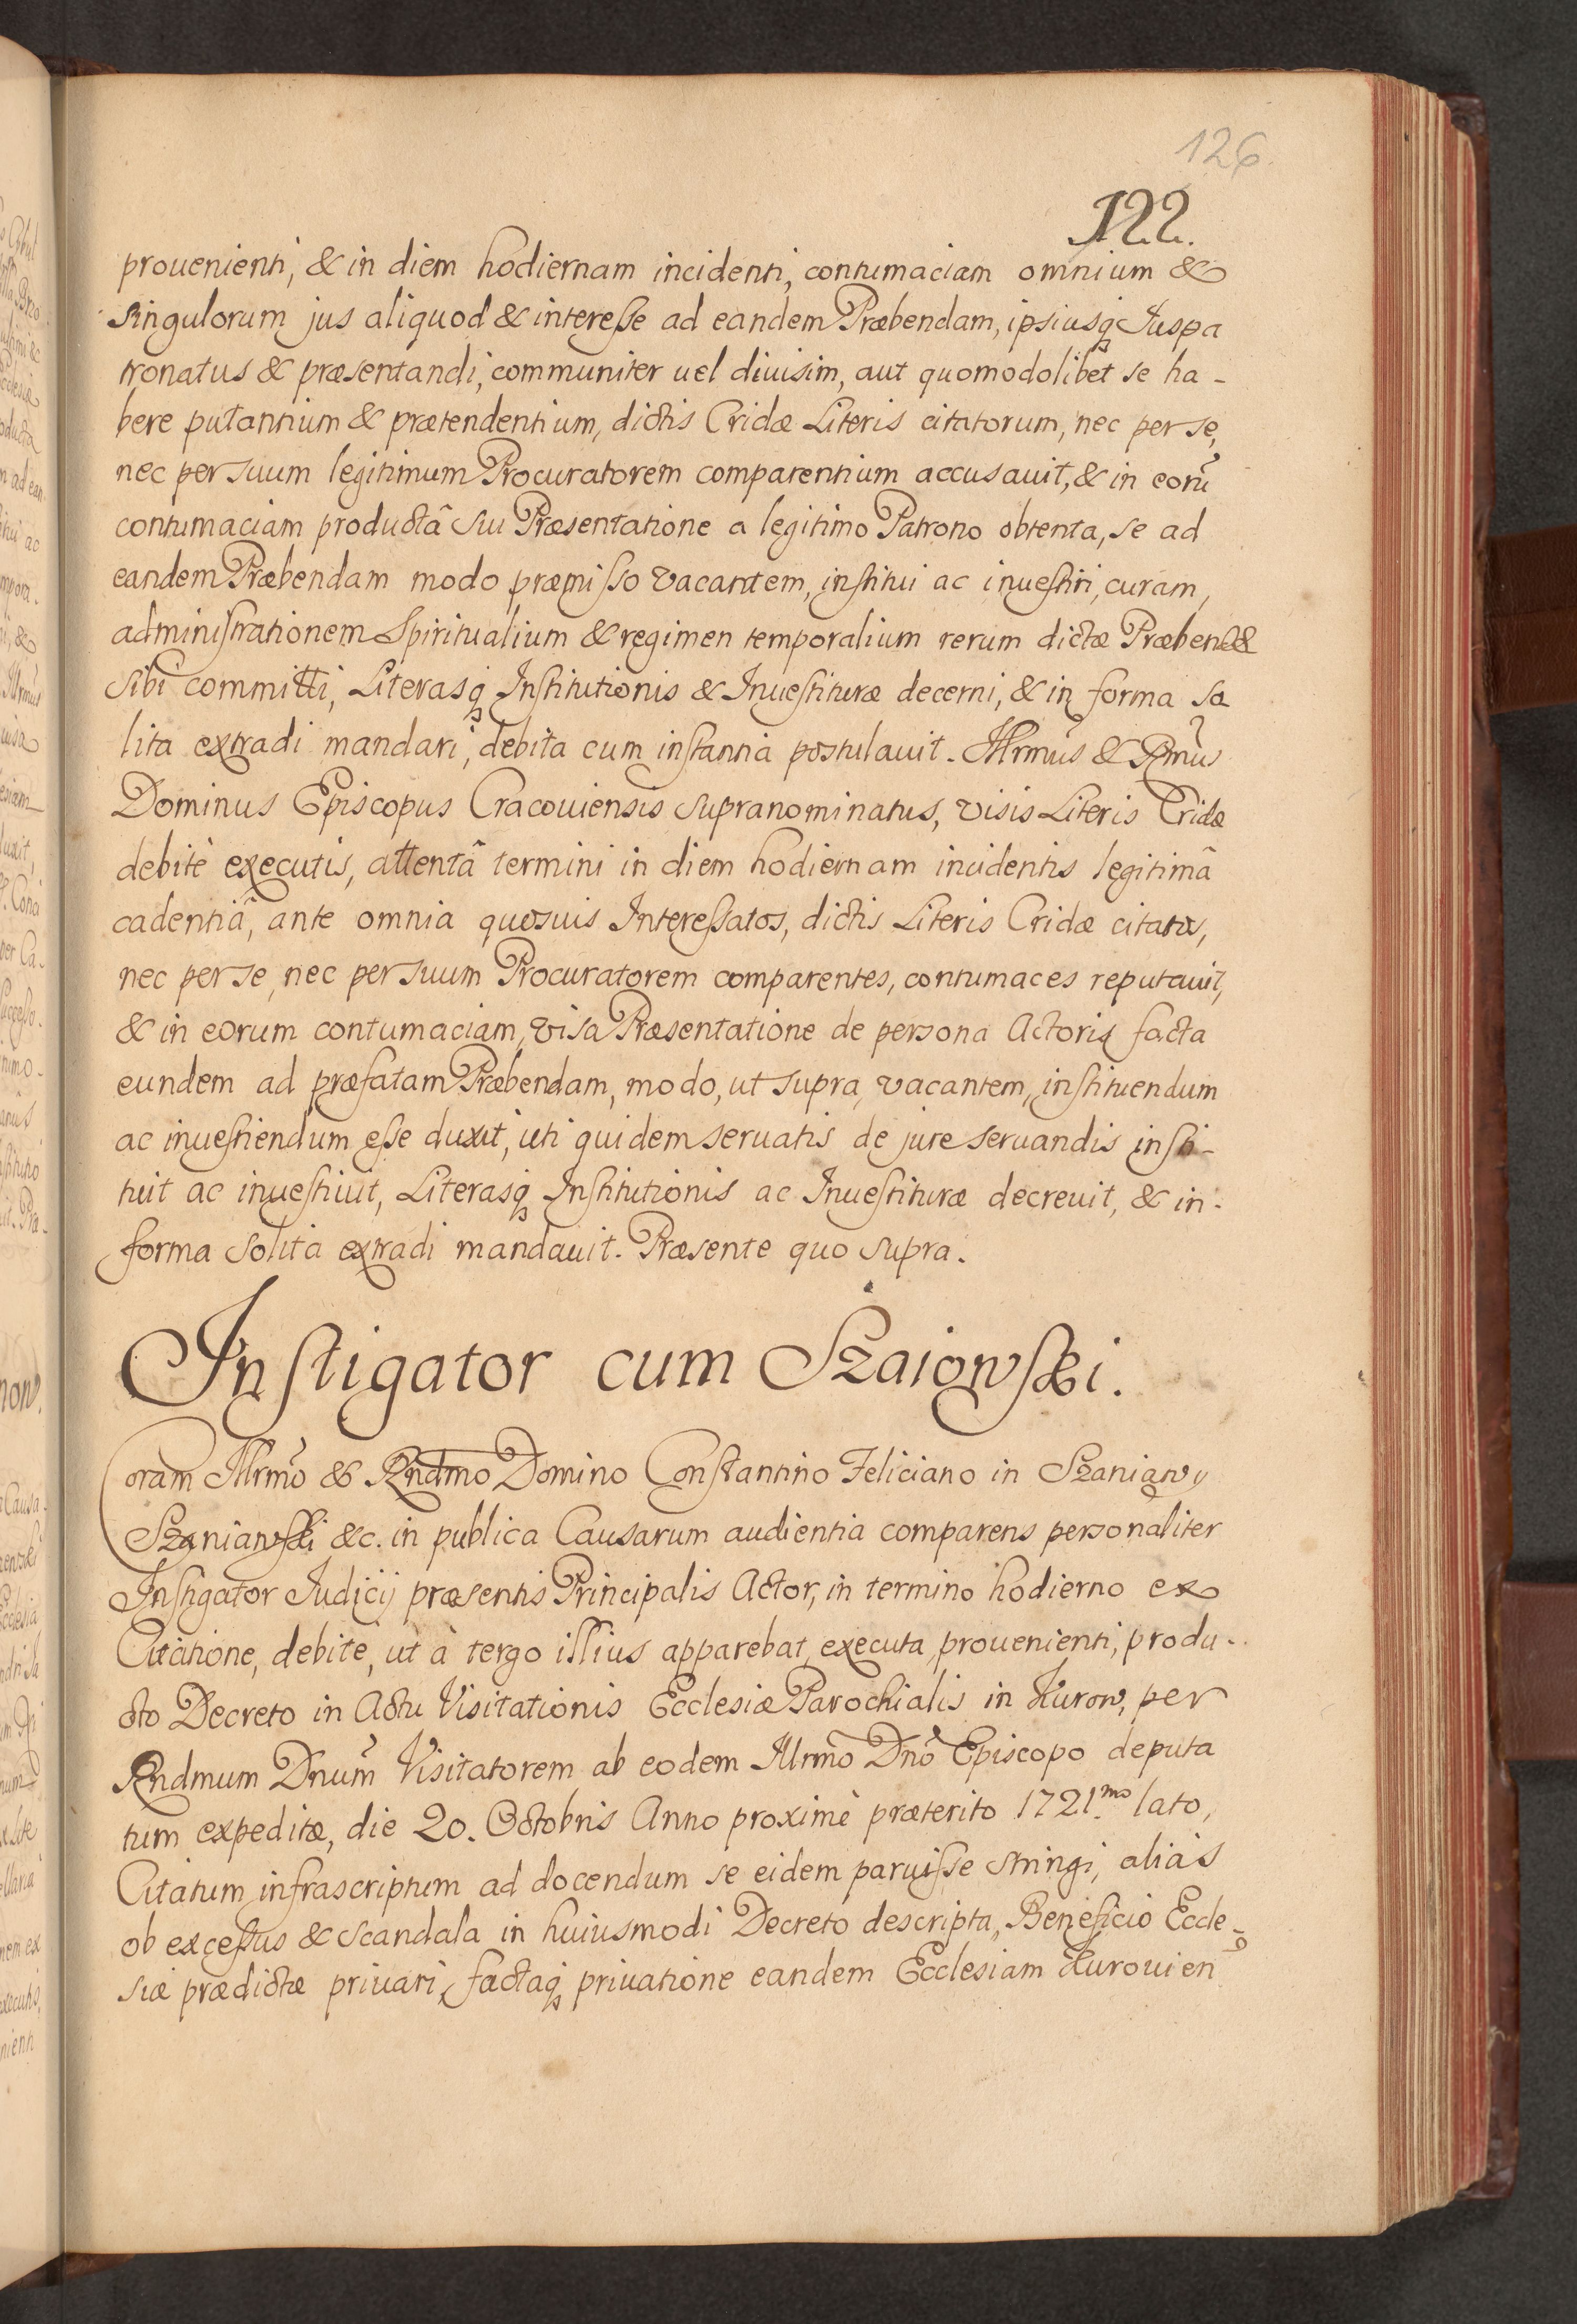 126.
122.
prouenienti, & in diem hodiernam incidenti, contumaciam omnium &
singulorum jus aliquod & interesse ad eandem Præbendam, ipsiusq Juspa
tronatus & præsentandi, communiter uel diuisim, aut quomodolibet se ha-
bere putantium & prætendentium, dictis Cridæ Literis citatorum, nec per se,
nec per suum legitimum Procuratorem comparentium accusauit, & in eorũ
contumaciam productâ sui Præsentatione a legitimo Patrono obtenta, se ad
eandem Præbendam modo præmisso vacantem, institui ac inuestiri, curam,
administrationem Spiritualium & regimen temporalium rerum dictæ Præbendæ
sibi committi, Literasq Institutionis & Inuestituræ decerni, & in forma so
lita extradi mandari, debita cum instantia postulauit. Illrmũs & Rmũs
Dominus Episcopus Cracouiensis supranominatus, visis Literis Cridæ
debitè executis, attentâ termini in diem hodiernam incidentis legitimâ
cadentiâ, ante omnia quosuis Interessatos, dictis Literis Cridæ citatos,
nec per se, nec per suum Procuratorem comparentes, contumaces reputauit,
& in eorum contumaciam, visa Præsentatione de persona Actoris facta
eundem ad præfatam Præbendam, modo, ut supra, vacantem, instituendum
ac inuestiendum esse duxit, uti quidem seruatis de jure seruandis insti-
tuit ac inuestiuit, Literasq Institutionis ac Inuestituræ decreuit, & in
forma solita extradi mandauit. Præsente quo supra.
Instigator cum Szaiowski.
Coram Illrmõ & Rndmo Domino Constantino Feliciano in Szaniawy
Szaniawski &c. in publica Causarum audientia comparens personaliter
Instigator Judicij præsentis Principalis Actor, in termino hodierno ex
Citatione, debitè, ut à tergo illius apparebat, executa, prouenienti, produ-
cto Decreto in Actu Visitationis Ecclesiæ Parochialis in Kurow, per
Rndmum Dnum̃ Visitatorem ab eodem Illrmõ Dnõ Episcopo deputa
tum expeditæ, die 20. Octobris Anno proximè præterito 1721.mo lato,
Citatum infrascriptum ad docendum se eidem paruisse stringi, aliàs
ob excessus & scandala in huiusmodi Decreto descripta, Beneficio Eccle-
siæ prædictæ priuari, factaq priuatione eandem Ecclesiam Kurouien